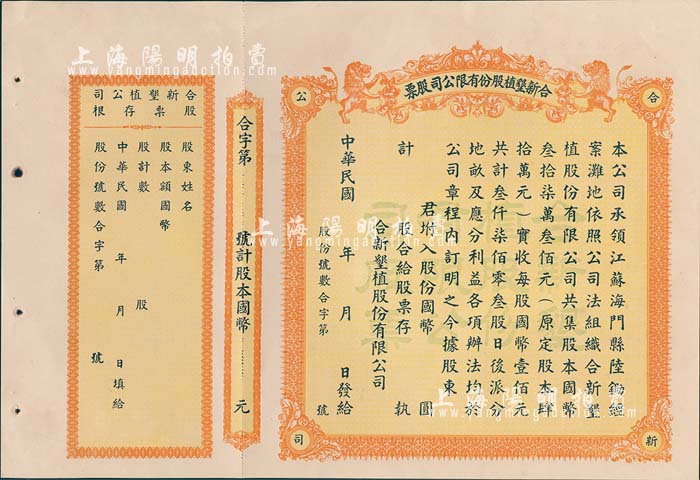 合新墾植股份有限公司股票
合
新
公
司
本公司承領江蘇海門縣陸錦經
案灘地依照公司法組織合新墾
植股份有限公司共集股本國幣
叁拾柒萬叁佰元（原定股本肆
拾萬元）實收每股國幣壹佰元
共計叁仟柒佰零叁股日後派分
地畝及應分利益各項辦法均於
公司章程內訂明之今據股東
君附入股份國幣 圓
計 股合給股票存 執
合新墾植股份有限公司
中華民國 年 月 日發給
股份號數合字第 號
合字第 號計股本國幣 元
合新墾植公司
股票存根
股東姓名
股本額國幣
股計數 股
中華民國 年 月 日填給
股份號數合字第 號
上海陽明拍賣
www.yangmingauction.com
上海陽明拍賣
www.yangmingauction.com
上海陽明拍賣
www.yangmingauction.com